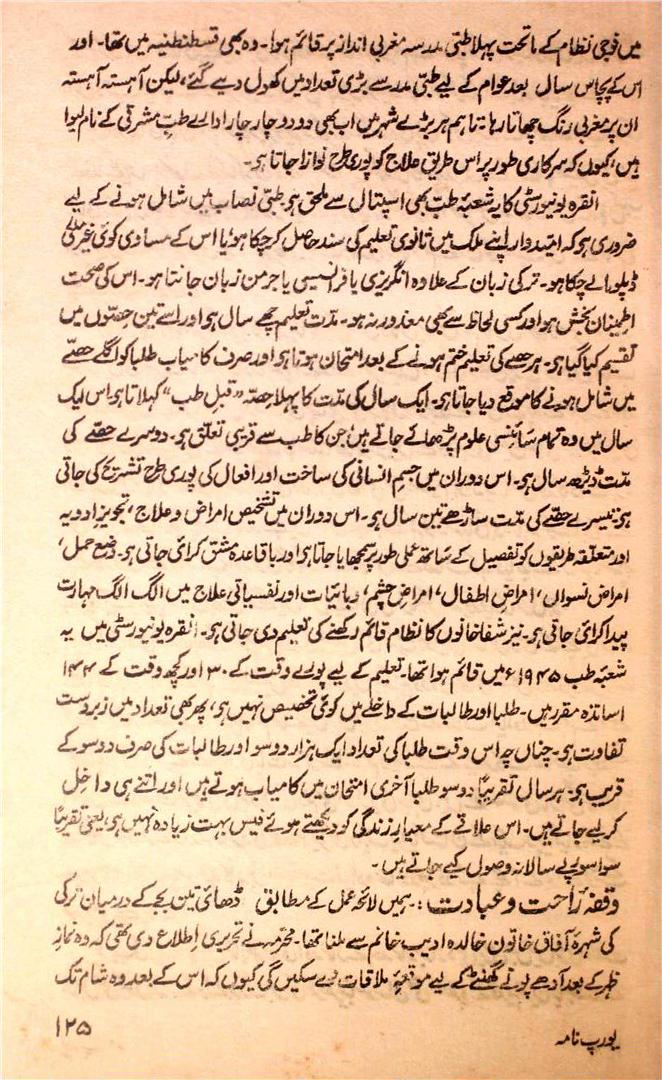 میں فوجی نظام کے ماتحت پہلا طبّی مدرسہ مغربی انداز پر قائم ہوا۔ وہ بھی قسطنطنیہ میں تھا۔ اور
اس کے پچاس سال بعد عوام کے لیے طبّی مدرسے بڑی تعداد میں کھول دیے گئے، لیکن آہستہ آہستہ
ان پر مغربی رنگ چھاتا رہا۔ تاہم ہر بڑے شہر میں اب بھی دو دو چار چار ادارے طبِ مشرقی کے نام لیوا
ہیں، کیوں کہ سرکاری طور پر اس طریقِ علاج کو پوری طرح نوازا جاتا ہو۔
انقرہ یونیورسٹی کا یہ شعبۂ طب بھی اسپتال سے ملحق ہو۔ طبّی نصاب میں شامل ہونے کے لیے
ضروری ہو کہ امیدوار اپنے ملک میں ثانوی تعلیم کی سند حاصل کر چکا ہو، یا اس کے مساوی کوئی غیر ملکی
ڈپلوما لے چکا ہو۔ ترکی زبان کے علاوہ انگریزی یا فرانسیسی یا جرمن زبان جانتا ہو۔ اس کی صحت
اطمینان بخش ہو اور کسی لحاظ سے بھی معذور نہ ہو۔ مدّت تعلیم چھے سال ہو اور اسے تین حصّوں میں
تقسیم کیا گیا ہو۔ ہر حصے کی تعلیم ختم ہونے کے بعد امتحان ہوتا ہو اور صرف کامیاب طلبا کو اگلے حصّے
میں شامل ہونے کا موقع دیا جاتا ہو۔ ایک سال کی مدّت کا پہلا حصّہ "قبلِ طب" کہلاتا ہو اس ایک
سال میں وہ تمام سائنسی علوم پڑھائے جاتے ہیں، جن کا طب سے قریبی تعلق ہو۔ دوسرے حصّے کی
مدّت ڈیڑھ سال ہو۔ اس دوران میں جسمِ انسانی کی ساخت اور افعال کی پوری طرح تشریح کی جاتی
ہو۔ تیسرے حصّے کی مدّت ساڑھے تین سال ہو۔ اس دوران میں تشخیص امراض و علاج، تجویزِ ادویہ
اور متعلقہ طریقوں کو تفصیل کے ساتھ عملی طور پر سمجھایا جاتا ہو اور باقاعدہ مشق کرائی جاتی ہو۔ وضعِ حمل،
امراضِ نسواں، امراضِ اطفال، امراضِ چشم، وبائیات اور نفسیاتی علاج میں الگ الگ مہارت
پیدا کرائی جاتی ہو۔ نیز شفاخانوں کا نظام قائم رکھنے کی تعلیم دی جاتی ہو۔ انقرہ یونیورسٹی میں یہ
شعبۂ طب ۱۹۴۵ء میں قائم ہوا تھا۔ تعلیم کے لیے پورے وقت کے ۳۰ اور کچھ وقت کے ۱۴۴
اساتذہ مقرر ہیں۔ طلبا اور طالبات کے داخلے میں کوئی تخصیص نہیں ہو، پھر بھی تعداد میں زبردست
تفاوت ہو۔ چناں چہ اس وقت طلبا کی تعداد ایک ہزار دو سو اور طالبات کی صرف دو سو کے
قریب ہو۔ ہر سال تقریباً دو سو طلبا آخری امتحان میں کامیاب ہوتے ہیں اور اتنے ہی داخل
کر لیے جاتے ہیں۔ اس علاقے کے معیارِ زندگی کو دیکھتے ہوئے فیس بہت زیادہ نہیں ہو، یعنی تقریباً
سوا سو روپے سالانہ وصول کیے جاتے ہیں۔
وقفۂ راحت و عبادت: ہمیں لائحۂ عمل کے مطابق ڈھائی تین بجے کے درمیان ترکی
کی شہرۂ آفاق خاتون خالدہ ادیب خانم سے ملنا تھا۔ محترمہ نے تحریری اطلاع دی تھی کہ وہ نمازِ
ظہر کے بعد آدھے پونے گھنٹے کے لیے موقعۂ ملاقات دے سکیں گی کیوں کہ اس کے بعد وہ شام تک
یورپ نامہ
۱۲۵